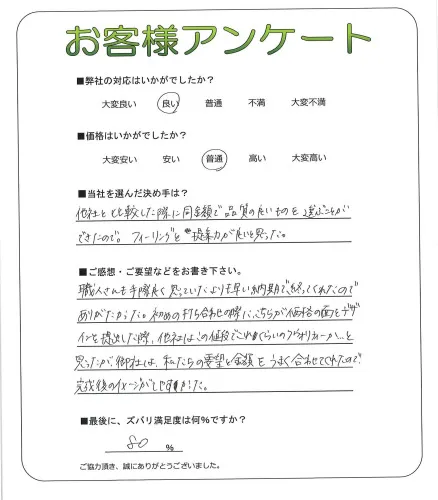 お客様アンケート
■弊社の対応はいかがでしたか？
大変良い 良い 普通 不満 大変不満
■価格はいかがでしたか？
大変安い 安い 普通 高い 大変高い
■当社を選んだ決め手は？
他社と比較した際に同金額で品質の良いものを選ぶことが
できたので。フィーリングと 提案力が良いと思った。
■ご感想・ご要望などをお書き下さい。
職人さんも手際良く思っていたよりも早い納期で終ってくれたので
ありがたかった。初めの打ち合わせの際に、こちらが価格の面とデザ
インを提出した際、他社はこの値段でこれくらいの
思ったが、御社は、私たちの要望と金額をうまく合わせてくれたので
完成後のイメージがし た。
■最後に、ズバリ満足度は何%ですか？
80 %
ご協力頂き、誠にありがとうございました。